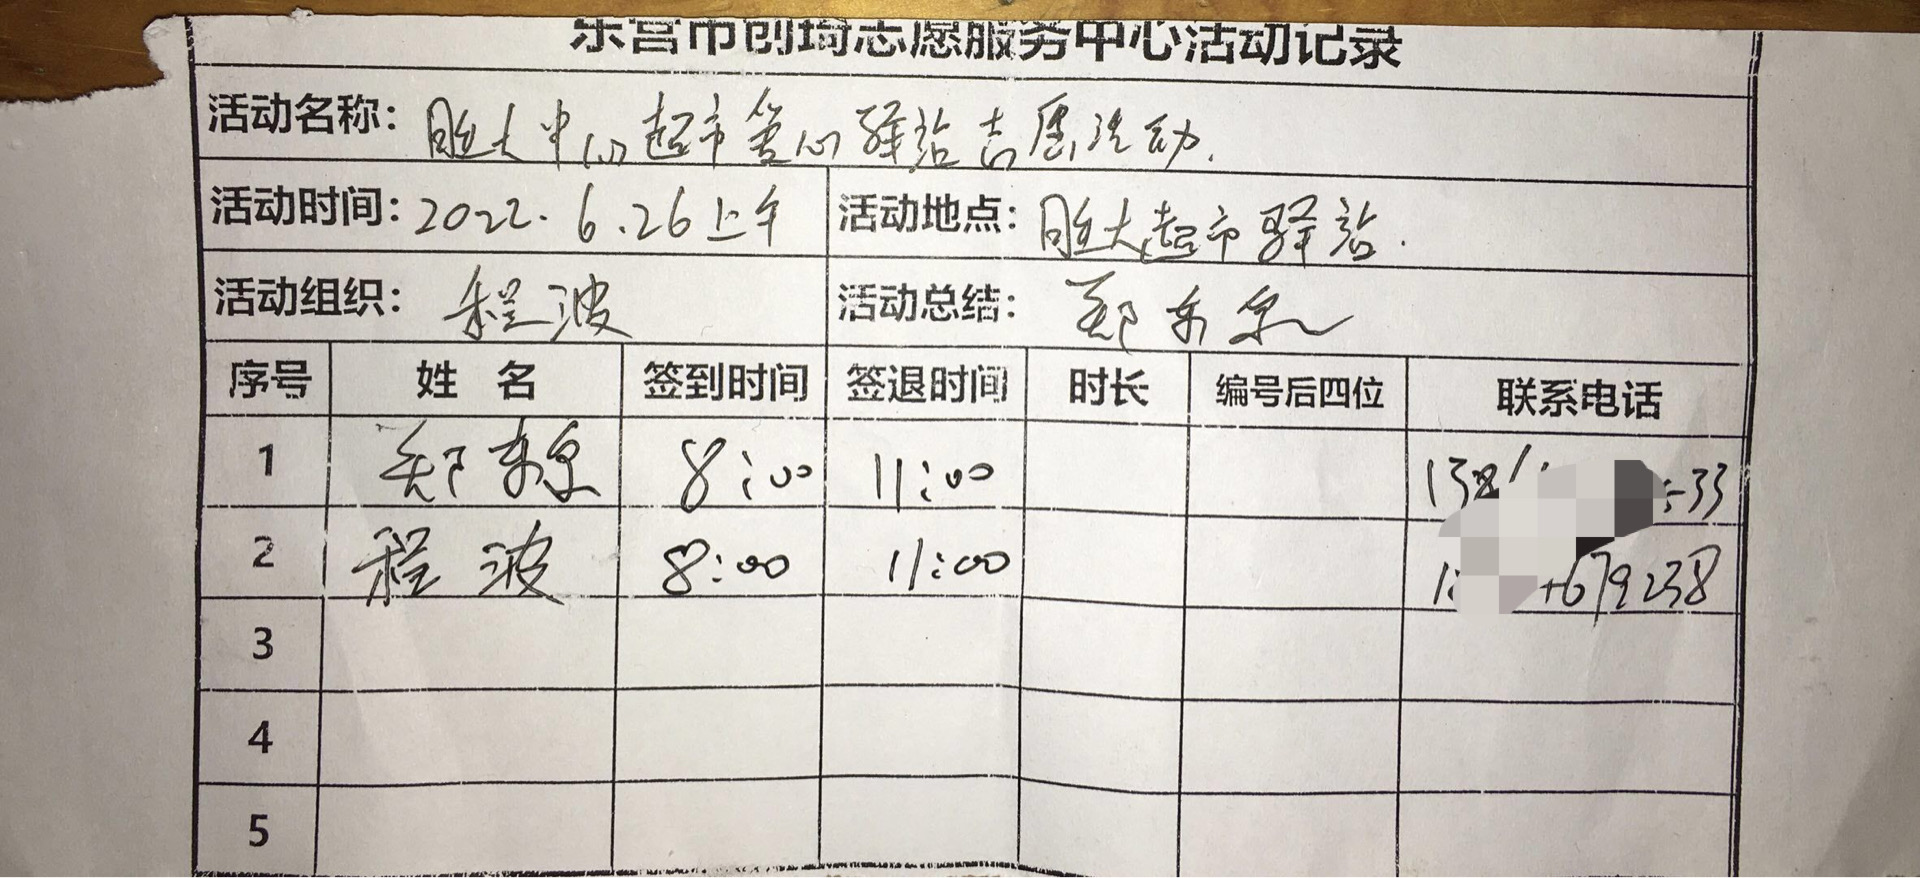 东营市创琦志愿服务中心活动记录
活动名称：胜大中心超市爱心驿站志愿活动.
活动时间：2022.6.26上午 活动地点：胜大超市驿站.
活动组织：程波 活动总结：郑东泉
序号 姓 名 签到时间 签退时间 时长 编号后四位 联系电话
1 郑东泉 8:00 11:00 33
2 程波 8:00 11:00 679238
3
4
5